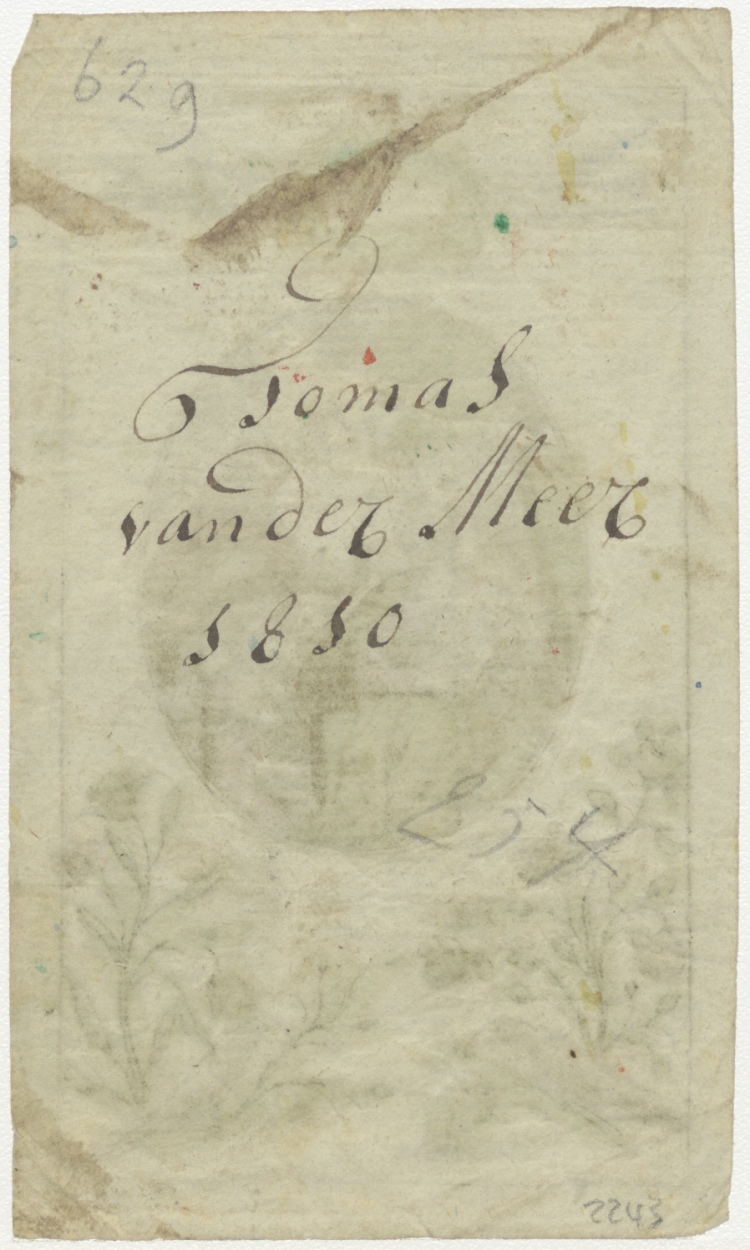 629
Tiomas
vander Meer
1810
854
2243